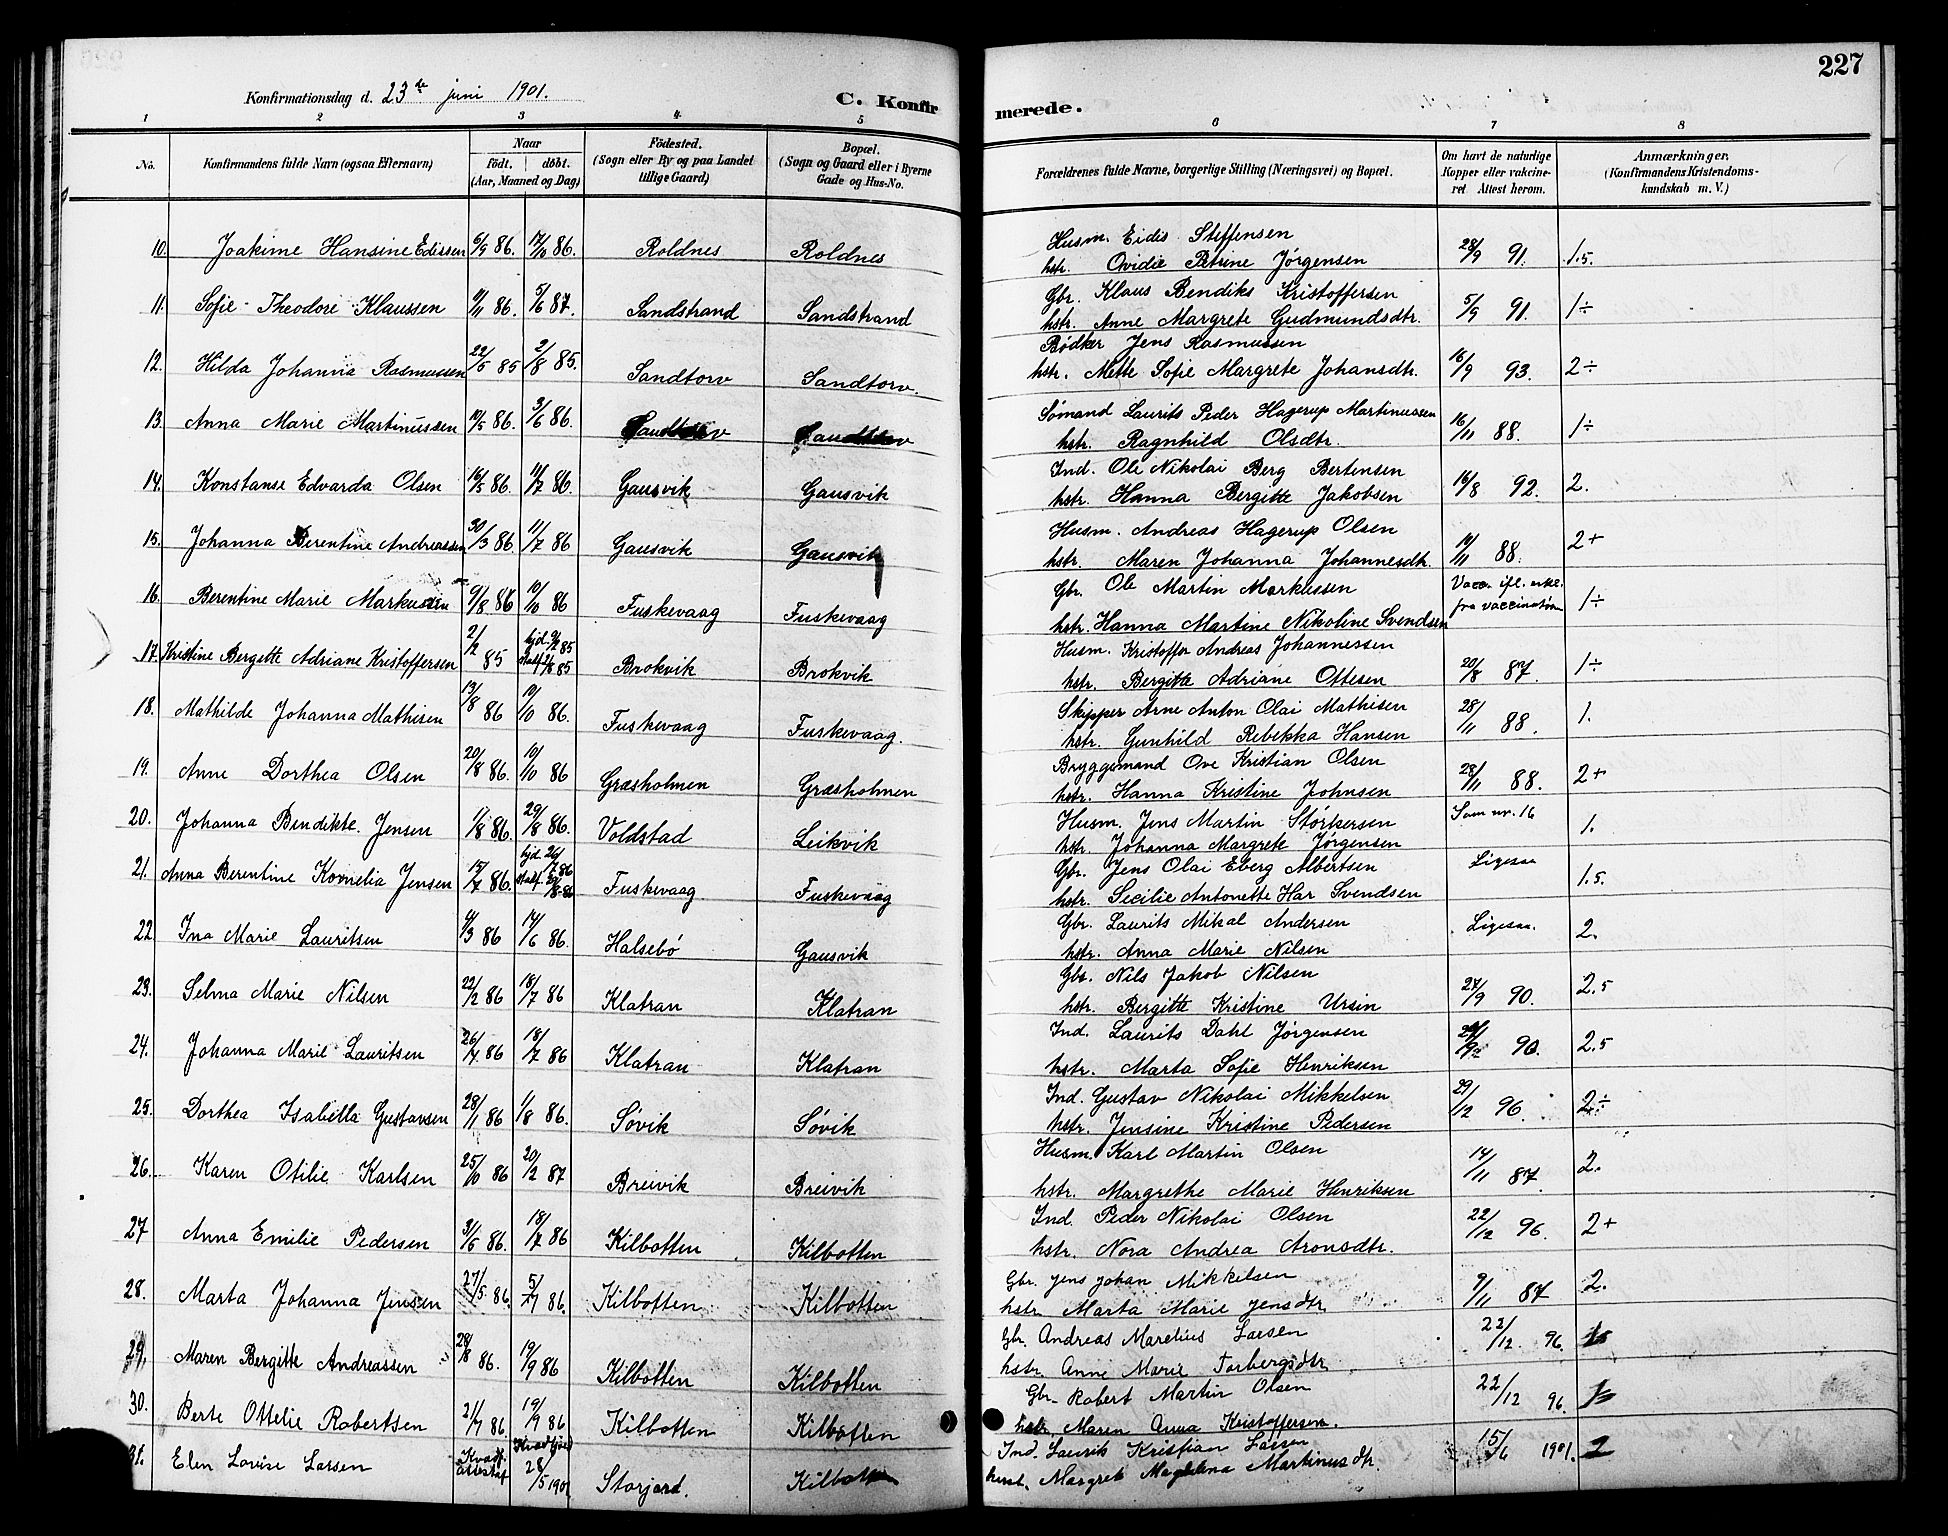 227
Konfirmationsdag d. 23de juni 1901.
C. Konfirmerede.
1 2 3 4 5 6 7 8
No.
Konfirmandens fulde Navn (ogsaa Efternavn)
Naar
født. døbt.
(Aar, Maaned og Dag)
Födested.
(Sogn eller By og paa Landet
tillige Gaard)
Bopæl.
(Sogn og Gaard eller i Byerne
Gade og Hus-No.
Forældrenes fulde Navne, borgerlige Stilling (Næringsvei) og Bopæl.
Om havt de naturlige
Kopper eller vakcine-
ret. Attest herom.
Anmærkninger.
(Konfirmandens Kristendoms-
kundskab m. V.)
10. Joakime Hansine Edissen 6/9 86. 17/10 86. Roldnes Roldnes Husm. Eidis Steffensen
hstr. Ovidie Petrine Jørgensen 28/9 91. 1.5.
11. Sofie Theodore Klaussen 11/11 86. 5/6 87. Sandstrand Sandstrand Gbr. Klaus Bendiks Kristoffersen
hstr. Anne Margrete Gudmundsdtr. 5/9 91. 1÷
12. Hilda Johanna Rasmussen 22/5 85 2/8 85. Sandtorv Sandtorv. Bødker Jens Rasmussen
hstr. Mette Sofie Margrete Johansdtr. 16/9 93. 2÷
13. Anna Marie Martinussen 10/5 86. 3/6 86. Sandtorv Sandtorv Sømand Laurits Peder Hagerup Martinussen
hstr. Ragnhild Olsdtr. 16/11 88. 1÷
14. Konstanse Edvarda Olsen 16/5 86. 11/7 86. Gausvik Gausvik Ind. Ole Nikolai Berg Bertensen
hstr. Hanna Bergitte Jakobsen 16/8 92. 2.
15. Johanna Berentine Andreassen 30/3 86 11/7 86 Gausvik Gausvik Husm. Andreas Hagerup Olsen
hstr. Maren Johanna Johannesdtr. 14/11 88. 2+
16. Berentine Marie Markussen 9/8 86 10/10 86 Fuskevaag Fuskevaag Gbr. Ole Martin Markussen
hstr. Hanna Martine Nikoline Svendsen Vacc. ifl. erkl.
fra vaccinatøren 1÷
17. Kristine Bergette Adriane Kristoffersen 2/2 85 hjd. 9/2 85
stadf. 2/8 85 Brokvik Brokvik Husm. Kristoffer Andreas Johannessen
hstr. Bergitte Adriane Ottesen 20/8 87. 1÷
18. Mathilde Johanna Mathisen 13/8 86 10/10 86. Fuskevaag Fuskevaag. Skipper Arne Anton Olai Mathisen
hstr. Gunhild Rebekka Hansen 28/11 88. 1.
19. Anne Dorthea Olsen 20/8 86. 10/10 86 Græsholmen Græsholmen Bryggemand Ove Kristian Olsen
hstr. Hanna Kristine Johnsen 28/11 88. 2+
20. Johanna Bendikte. Jensen 1/8 86. 29/8 86. Voldstad Leikvik Husm. Jens Martin Størkersen
hstr. Johanna Margrete Jørgensen Som nr. 16 1.
21. Anna Berentine Kornelia Jensen 17/7 86. hjd. 26/7 86
stadf. 29/8 86 Fuskevaag Fuskevaag Gbr. Jens Olai Eberg Albertsen
hstr. Secilie Antonette Har Svendsen Ligesaa 1.5.
22 Ina Marie Lauritsen 4/3 86 14/6 86. Halsebø Gausvik Gbr. Laurits Mikal Andersen
hstr. Anna Marie Nilsen Ligesaa. 2.
23. Selma Marie Nilsen 22/2 86 18/7 86 Klatran Klatran Gbr. Nils Jakob Nilsen
hstr. Bergitte Kristine Ursin 27/9 90. 2.5
24. Johanna Marie Lauritsen 26/4 86 18/7 86 Klatran Klatran Ind. Laurits Dahl Jørgensen
hstr. Marta Sofie Henriksen 90. 2.5
25. Dorthea Isabella Gustavsen 28/1 86 1/8 86. Søvik Søvik Ind. Gustav Nikolai Mikkelsen
hstr. Jensine Kristine Pedersen 29/12 96. 2÷
26. Karen Otilie Karlsen 25/10 86 20/2 87 Breivik Breivik Husm. Karl Martin Olsen
hstr. Margrethe Marie Henriksen 14/11 87. 2.
27 Anna Emilie Pedersen 3/5 86. 18/7 86 Kilbotten Kilbotten Ind. Peder Nikolai Olsen
hstr. Nora Andrea Aronsdtr. 22/12 96. 2+
28. Marta Johanna Jensen 27/5 86. 5/7 86. Kilbotten Kilbotten Gbr. Jens Johan Mikkelsen
hstr. Marta Marie Jensdtr 9/11 87 2.
29. Maren Bergitte Andreassen 28/8 86. 19/9 86 Kilbotten Kilbotten Gbr. Andreas Marelius Larsen
hstr. Anne Marie Torbergsdtr. 22/12 96.
30. Berte Ottelie Robertsen 21/7 86. 19/9 86 Kilbotten Kilbotten Gbr. Robert Martin Olsen
hstr. Maren Anna Kristoffersen. 22/12 96.
31. Elen Lovise Larsen 28/5 1901 Storjord. Kilbotten Ind. Laurik Kristian Larsen
hust. Margret Magdalena Martinusdtr. 15/6 1901. 2